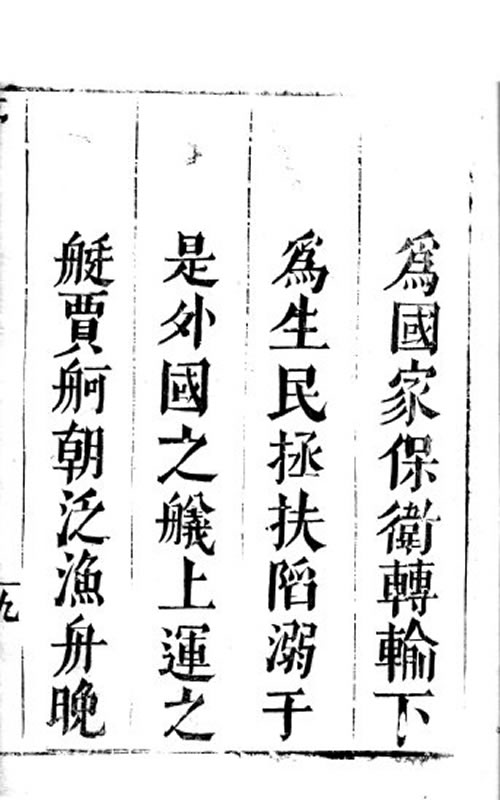 爲國家保衛轉輸下
爲生民拯扶陷溺于
是外國之艤上運之
艇賈舸朝泛漁舟晚
九